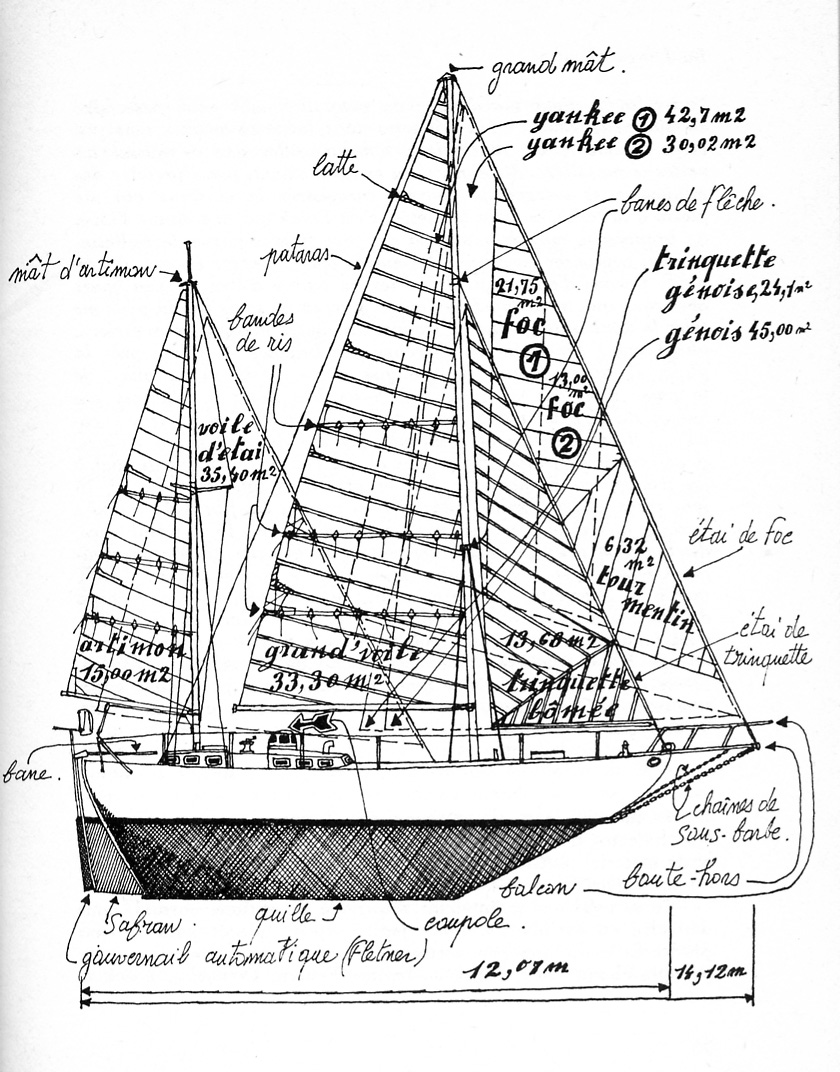 grand mât.
yankee ① 42,7 m2
yankee ② 30,02 m2
latte
barres de flèche.
pataras
mât d'artimon
trinquette
génoise, 24,1 m²
génois 45,00 m²
bandes
de ris
21,75
m²
foc
①
13,00
m²
foc
②
voile
d'étai
35,40 m²
étai de foc
6,32
m²
tour
mentin
étai de
trinquette
artimon
15,00 m2
grand'voile
33,30 m²
13,60 m²
trinquette
bômée
barre.
chaînes de
sous-barbe.
balcon
boute-hors
safran.
quille
coupole.
gouvernail automatique (Fletner)
12,07 m
14,12 m